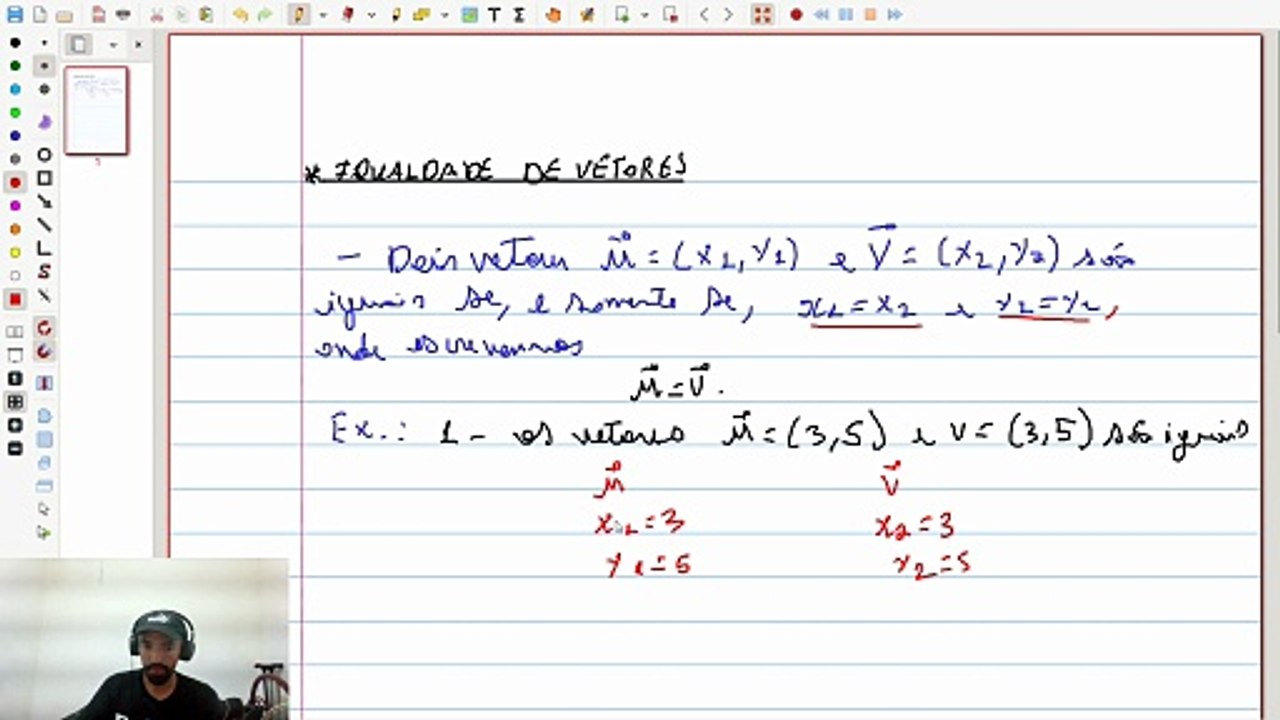 * IGUALDADE DE VETORES
- Dois vetores u⃗ = (x1, y1) e v⃗ = (x2, y2) são
iguais se, e somente se, x1 = x2 e y1 = y2,
onde escrevemos
u⃗ = v⃗.
Ex.: 1 - os vetores u⃗ = (3,5) e v = (3,5) são iguais
u⃗ v⃗
x1 = 3 x2 = 3
y1 = 5 y2 = 5